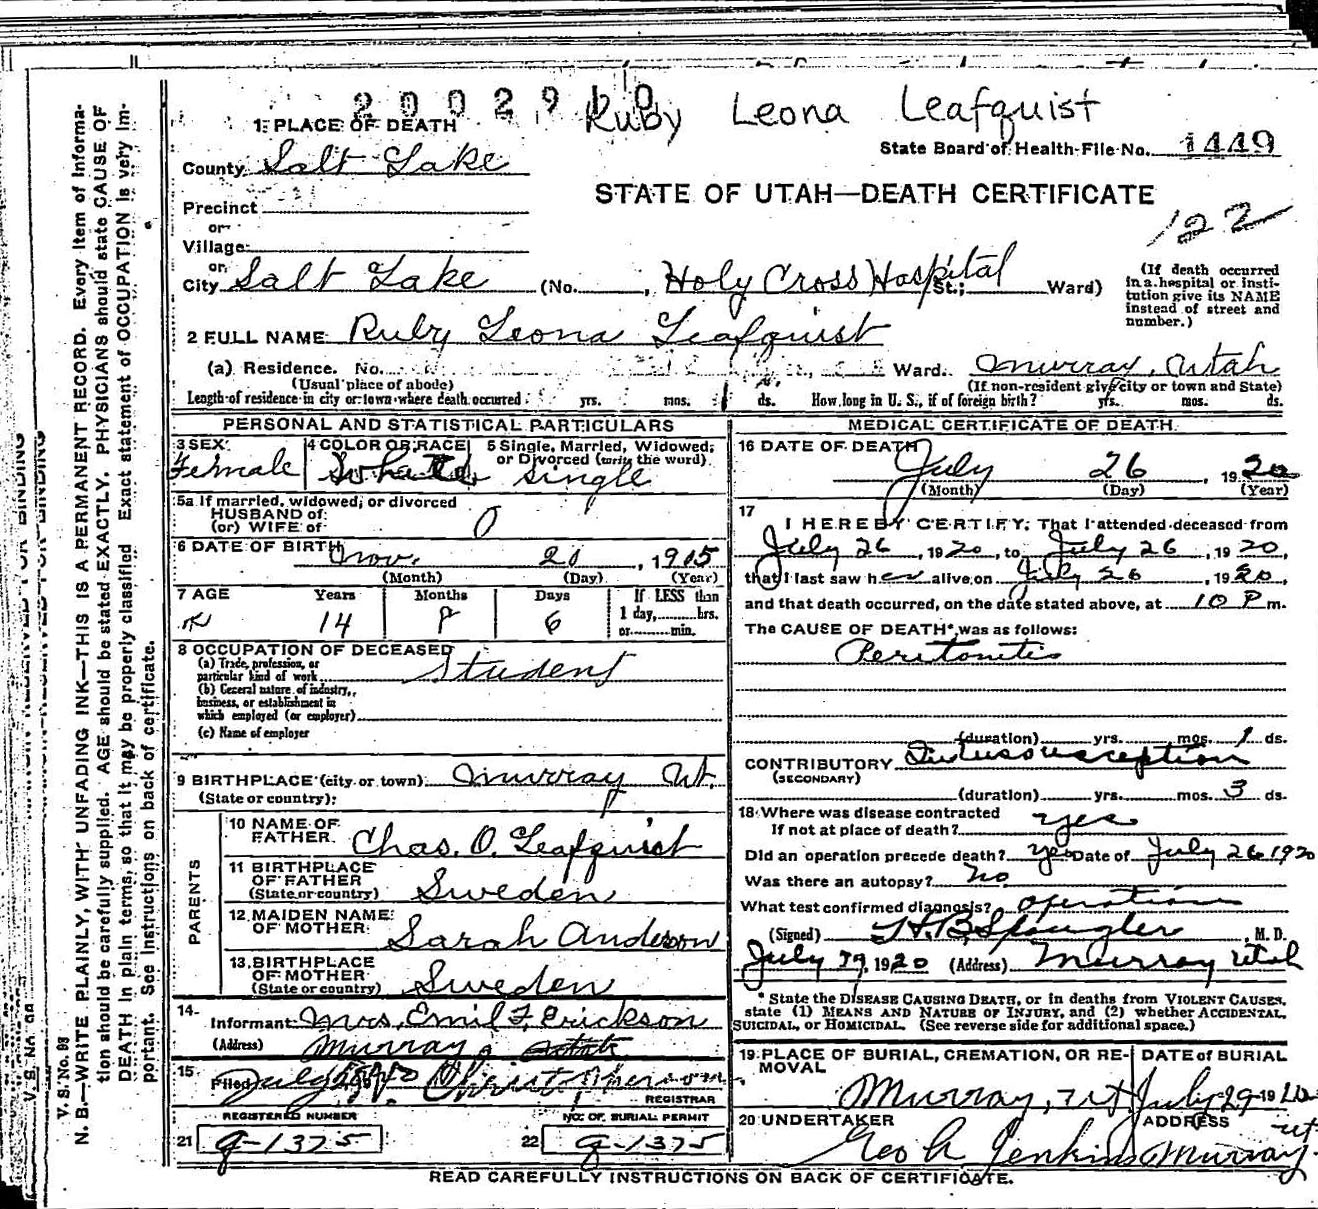 2002910
Ruby Leona Leafquist
1 PLACE OF DEATH
State Board of Health File No. 1449
County Salt Lake
STATE OF UTAH—DEATH CERTIFICATE
Precinct
122
or
Village
or
City Salt Lake (No. , Holy Cross Hospital St.; Ward)
(If death occurred in a hospital or institution give its NAME instead of street and number.)
2 FULL NAME Ruby Leona Leafquist
(a) Residence. No. Ward. Murray, Utah
(Usual place of abode) (If non-resident give city or town and State)
Length of residence in city or town where death occurred yrs. mos. 1 ds. How long in U. S., if of foreign birth? yrs. mos. ds.
PERSONAL AND STATISTICAL PARTICULARS
3 SEX 4 COLOR OR RACE 5 Single, Married, Widowed, or Divorced (write the word)
Female White Single
5a If married, widowed, or divorced
HUSBAND of
(or) WIFE of 0
6 DATE OF BIRTH Nov. 20, 1905
(Month) (Day) (Year)
7 AGE Years Months Days If LESS than
1 day, hrs.
or min.
14 8 6
8 OCCUPATION OF DECEASED
(a) Trade, profession, or
particular kind of work Student
(b) General nature of industry,
business, or establishment in
which employed (or employer)
(c) Name of employer
9 BIRTHPLACE (city or town) Murray Ut.
(State or country)
PARENTS
10 NAME OF
FATHER Chas. O. Leafquist
11 BIRTHPLACE
OF FATHER
(State or country) Sweden
12 MAIDEN NAME
OF MOTHER Sarah Anderson
13 BIRTHPLACE
OF MOTHER
(State or country) Sweden
14
Informant Mrs. Emil F. Erickson
(Address) Murray, Utah
15
Filed July
REGISTRAR
REGISTERED NUMBER NO. OF BURIAL PERMIT
21 g-1375 22 g-1375
MEDICAL CERTIFICATE OF DEATH
16 DATE OF DEATH
July 26, 1920
(Month) (Day) (Year)
17
I HEREBY CERTIFY, That I attended deceased from
July 26, 1920, to July 26, 1920,
that I last saw her alive on July 26, 1920,
and that death occurred, on the date stated above, at 10 P m.
The CAUSE OF DEATH* was as follows:
Peritonitis
(duration) yrs. mos. 1 ds.
CONTRIBUTORY Intussusception
(SECONDARY)
(duration) yrs. mos. 3 ds.
18 Where was disease contracted
If not at place of death? yes
Did an operation precede death? yes Date of July 26 1920
Was there an autopsy? No
What test confirmed diagnosis? operation
(Signed) H. B. Spangler, M. D.
July 29, 1920 (Address) Murray Utah
* State the DISEASE CAUSING DEATH, or in deaths from VIOLENT CAUSES,
state (1) MEANS AND NATURE OF INJURY, and (2) whether ACCIDENTAL,
SUICIDAL, or HOMICIDAL. (See reverse side for additional space.)
19 PLACE OF BURIAL, CREMATION, OR REMOVAL DATE of BURIAL
Murray, Ut July 29 1920
20 UNDERTAKER ADDRESS
Geo A Jenkins Murray Ut
READ CAREFULLY INSTRUCTIONS ON BACK OF CERTIFICATE.
V. S. No. 98
N. B.—WRITE PLAINLY, WITH UNFADING INK—THIS IS A PERMANENT RECORD. Every item of informa-
tion should be carefully supplied. AGE should be stated EXACTLY. PHYSICIANS should state CAUSE OF
DEATH in plain terms, so that it may be properly classified. Exact statement of OCCUPATION is very im-
portant. See instructions on back of certificate.